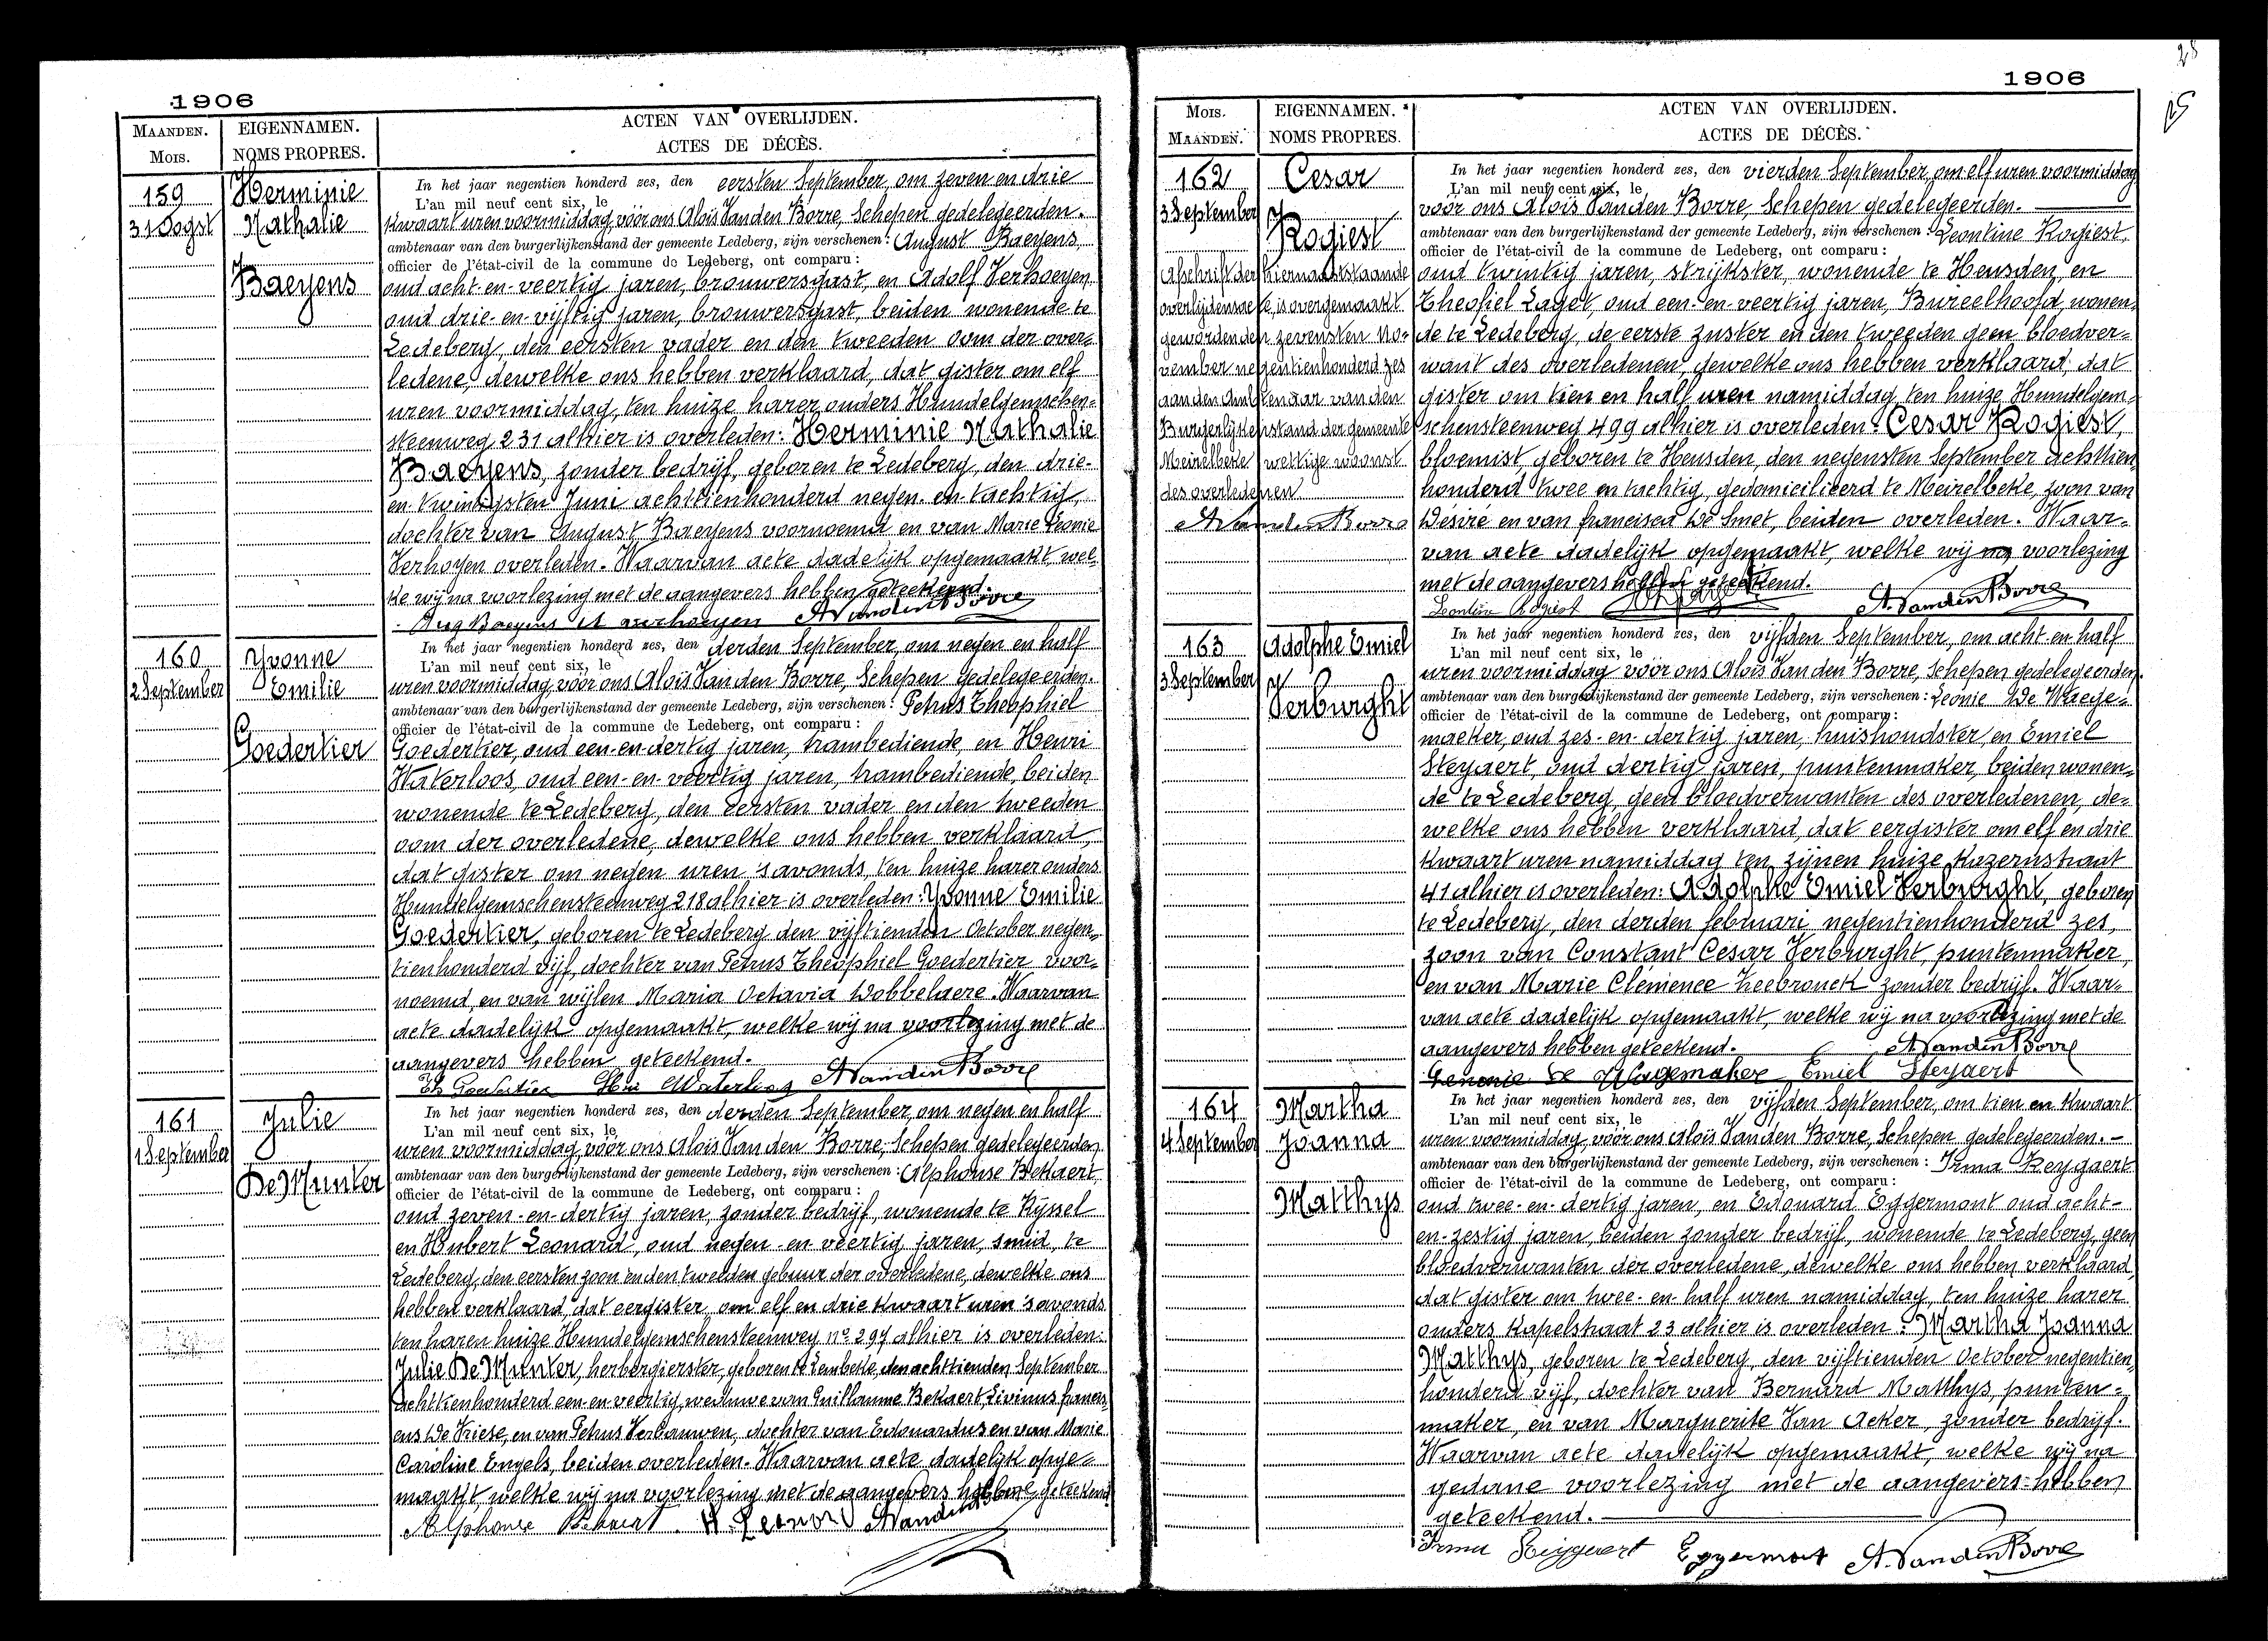 1906
MAANDEN.
MOIS.
EIGENNAMEN.
NOMS PROPRES.
ACTEN VAN OVERLIJDEN.
ACTES DE DÉCÈS.
159
31 Oogst
Herminie
Nathalie
Baeyens
In het jaar negentien honderd zes, den eersten September, om zeven en drie
L'an mil neuf cent six, le
kwaart uren voormiddag, vóór ons Aloïs Van den Borre, Schepen gedelegeerden.
ambtenaar van den burgerlijkenstand der gemeente Ledeberg, zijn verschenen: August Baeyens,
officier de l'état-civil de la commune de Ledeberg, ont comparu:
oud acht-en-veertig jaren, brouwersgast, en Adolf Verhoeyen
oud drie-en-vijftig jaren, brouwersgast, beiden wonende te
Ledeberg, den eersten vader en den tweeden oom der over-
ledene, dewelke ons hebben verklaard, dat gister om elf
uren voormiddag, ten huize harer ouders Hundelgemschen-
steenweg 231 alhier is overleden: Herminie Nathalie
Baeyens, zonder bedrijf, geboren te Ledeberg, den drie-
en-twintigsten Juni achttienhonderd negen-en-tachtig,
dochter van August Baeyens voornoemd en van Marie Leonie
Verhoyen overleden. Waarvan acte dadelijk opgemaakt, wel-
ke wij na voorlezing met de aangevers hebben geteekend.
Aug Baeyens At averhoeyen A Van den Borre
160
2 September
Yvonne
Emilie
Goedertier
In het jaar negentien honderd zes, den derden September, om negen en half
L'an mil neuf cent six, le
uren voormiddag, vóór ons Aloïs Van den Borre, Schepen gedelegeerden.
ambtenaar van den burgerlijkenstand der gemeente Ledeberg, zijn verschenen: Petrus Theophiel
officier de l'état-civil de la commune de Ledeberg, ont comparu:
Goedertier, oud een-en-dertig jaren, trambediende, en Henri
Waterloos, oud een-en-veertig jaren, trambediende, beiden
wonende te Ledeberg, den eersten vader en den tweeden
oom der overledene, dewelke ons hebben verklaard,
dat gister om negen uren 's avonds, ten huize harer ouders
Hundelgemschensteenweg 218 alhier is overleden: Yvonne Emilie
Goedertier, geboren te Ledeberg den vijftienden October negen-
tienhonderd vijf, dochter van Petrus Theophiel Goedertier voor-
noemd, en van wijlen Maria Octavia Dobbelaere. Waarvan
acte dadelijk opgemaakt, welke wij na voorlezing met de
aangevers hebben geteekend.
Th Goedertier Hri Waterloos A Van den Borre
161
1 September
Julie
De Munter
In het jaar negentien honderd zes, den derden September, om negen en half
L'an mil neuf cent six, le
uren voormiddag, vóór ons Aloïs Van den Borre, Schepen gedelegeerden
ambtenaar van den burgerlijkenstand der gemeente Ledeberg, zijn verschenen: Alphonse Bekaert,
officier de l'état-civil de la commune de Ledeberg, ont comparu:
oud zeven-en-dertig jaren, zonder bedrijf, wonende te Ryssel
en Hubert Leonard, oud negen-en-veertig jaren, smid, te
Ledeberg, den eersten zoon en den tweeden gebuur der overledene, dewelke ons
hebben verklaard, dat eergister, om elf en drie kwaart uren 's avonds
ten haren huize Hundelgemschensteenweg no 297 alhier is overleden:
Julie De Munter, herbergierster, geboren te Lembeke, den achttienden September
achttienhonderd een-en-veertig, weduwe van Guillaume Bekaert, Livinus francis-
cus De Vriese, en van Petrus Verbauwen, dochter van Edouardus en van Marie
Caroline Engels, beiden overleden. Waarvan acte dadelijk opge-
maakt, welke wij na voorlezing met de aangevers hebben geteekend
Alphonse Bekaert. H. Leonard A Van den Borre
1906
MOIS.
MAANDEN.
EIGENNAMEN.
NOMS PROPRES.
ACTEN VAN OVERLIJDEN.
ACTES DE DÉCÈS.
162
3 September
Cesar
Rogiest
Afschrift der hiernaastaande
overlijdensacte, is overgemaakt
geworden den zevensten No-
vember negentienhonderd zes
aan den Ambtenaar van den
Burgerlijkenstand der gemeente
Meirelbeke wettige woonst
des overledenen
A Van den Borre
In het jaar negentien honderd zes, den vierden September, om elf uren voormiddag
L'an mil neuf cent six, le
vóór ons Aloïs Van den Borre, Schepen gedelegeerden.
ambtenaar van den burgerlijkenstand der gemeente Ledeberg, zijn verschenen: Leontine Rogiest,
officier de l'état-civil de la commune de Ledeberg, ont comparu:
oud twintig jaren, strijkster, wonende te Heusden, en
Theofiel Laget, oud een-en-veertig jaren, Bureelhoofd, wonen-
de te Ledeberg, de eerste zuster en den tweeden geen bloedver-
want des overledenen, dewelke ons hebben verklaard, dat
gister om tien en half uren namiddag, ten huize Hundelgem-
schensteenweg 499 alhier is overleden: Cesar Rogiest,
bloemist, geboren te Heusden, den negensten September achttien-
honderd twee en tachtig, gedomicilieerd te Meirelbeke, zoon van
Désiré en van francisca De Smet, beiden overleden. Waar-
van acte dadelijk opgemaakt, welke wij na voorlezing
met de aangevers hebben geteekend.
Leontine Rogiest A. Van den Borre
163
3 September
Adolphe Emiel
Verburght
In het jaar negentien honderd zes, den vijfden September, om acht en half
L'an mil neuf cent six, le
uren voormiddag vóór ons Aloïs Van den Borre, Schepen gedelegeerden.
ambtenaar van den burgerlijkenstand der gemeente Ledeberg, zijn verschenen: Leonie De Waege-
officier de l'état-civil de la commune de Ledeberg, ont comparu:
maeker, oud zes-en-dertig jaren, huishoudster, en Emiel
Steyaert, oud dertig jaren, puntenmaker, beiden wonen-
de te Ledeberg, geen bloedverwanten des overledenen, de-
welke ons hebben verklaard, dat eergister om elf en drie
kwaart uren namiddag ten zijnen huize Kazernstraat
41 alhier is overleden: Adolphe Emiel Verburght, geboren
te Ledeberg, den derden februari negentienhonderd zes,
zoon van Constant Cesar Verburght, puntenmaker,
en van Marie Clémence Heebrouck zonder bedrijf. Waar-
van acte dadelijk opgemaakt, welke wij na voorlezing met de
aangevers hebben geteekend. A. Van den Borre
De Wagemaker Emiel Steyaert
164
4 September
Martha
Joanna
Matthys
In het jaar negentien honderd zes, den vijfden September, om tien en kwaart
L'an mil neuf cent six, le
uren voormiddag, vóór ons Aloïs Van den Borre, Schepen gedelegeerden. -
ambtenaar van den burgerlijkenstand der gemeente Ledeberg, zijn verschenen: Irma Reygaert
officier de l'état-civil de la commune de Ledeberg, ont comparu:
oud twee-en-dertig jaren, en Edouard Eggermont oud acht-
en-zestig jaren, beiden zonder bedrijf, wonende te Ledeberg, geen
bloedverwanten der overledene, dewelke ons hebben verklaard,
dat gister om twee-en-half uren namiddag, ten huize harer
ouders Kapelstraat 23 alhier is overleden: Martha Joanna
Matthys, geboren te Ledeberg, den vijftienden October negentien-
honderd vijf, dochter van Bernard Matthys, punten-
maker, en van Marguerite Van Acker, zonder bedrijf.
Waarvan acte dadelijk opgemaakt, welke wij na
gedane voorlezing met de aangevers hebben
geteekend.
Irma Reygaert Eggermont A. Van den Borre